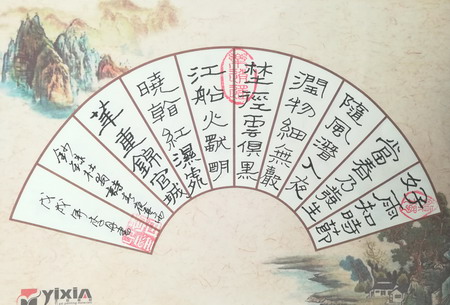 好雨知時節
當春乃發生
隨風潛入夜
潤物細無聲
埜徑雲俱黑
江船火獨明
曉看紅濕處
華重錦官城
杜甫詩春夜喜雨
戊戌